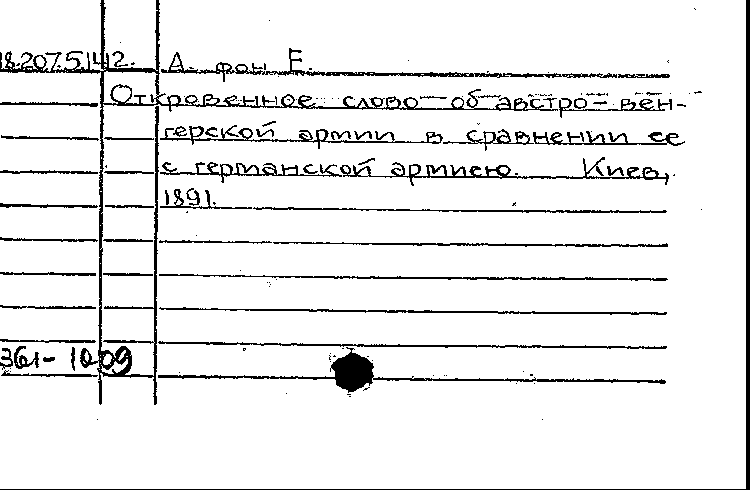 18.207.5.142. А. фон Е.
Откровенное слово об австро-вен-
герской армии в сравнении ее
с германской армиею. Киев,
1891.
361-1009